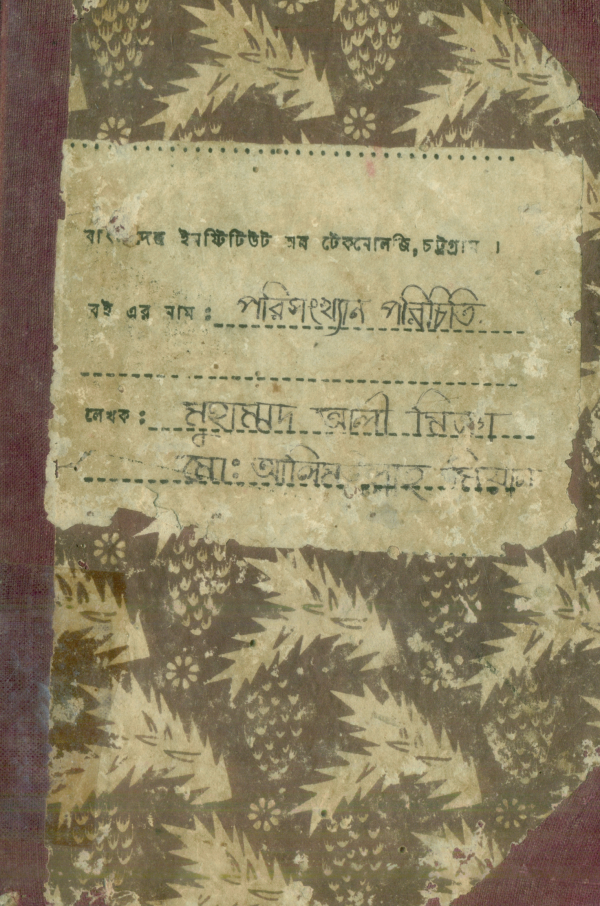 বাংলাদেশ ইনষ্টিটিউট অব টেকনোলজি, চট্টগ্রাম ।
বই এর নাম : পরিসংখ্যান পরিচিতি
লেখক : মুহাম্মদ আলী মিঞা
মোঃ আলিমউল্যাহ মিয়ান